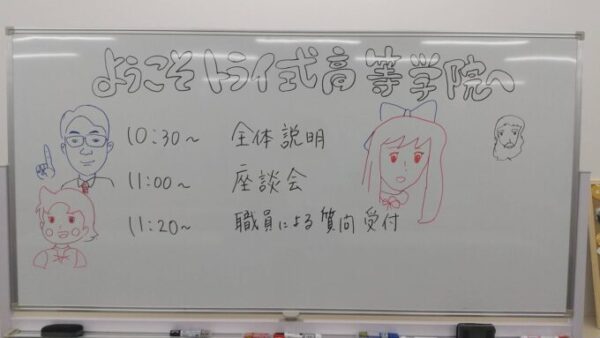 ようこそトライ式高等学院へ
10:30～ 全体説明
11:00～ 座談会
11:20～ 職員による質問受付